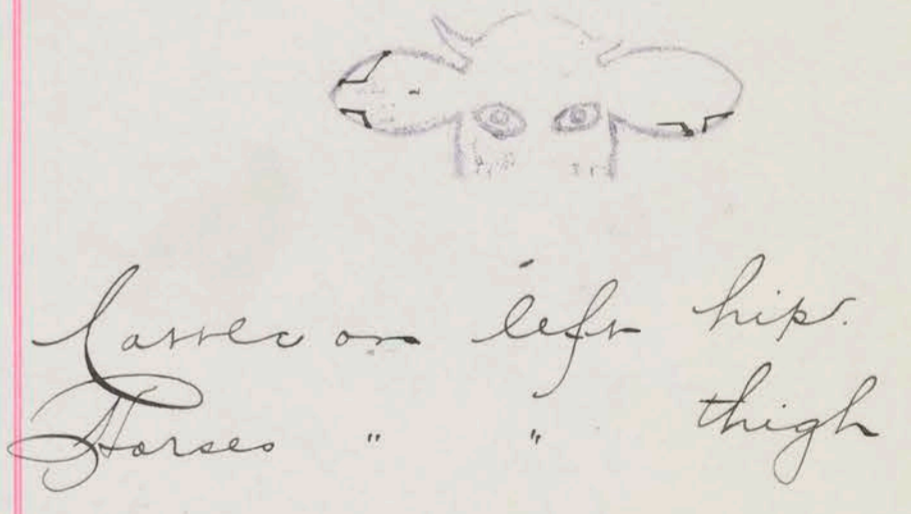 Cattle on left hip.
Horses " " thigh